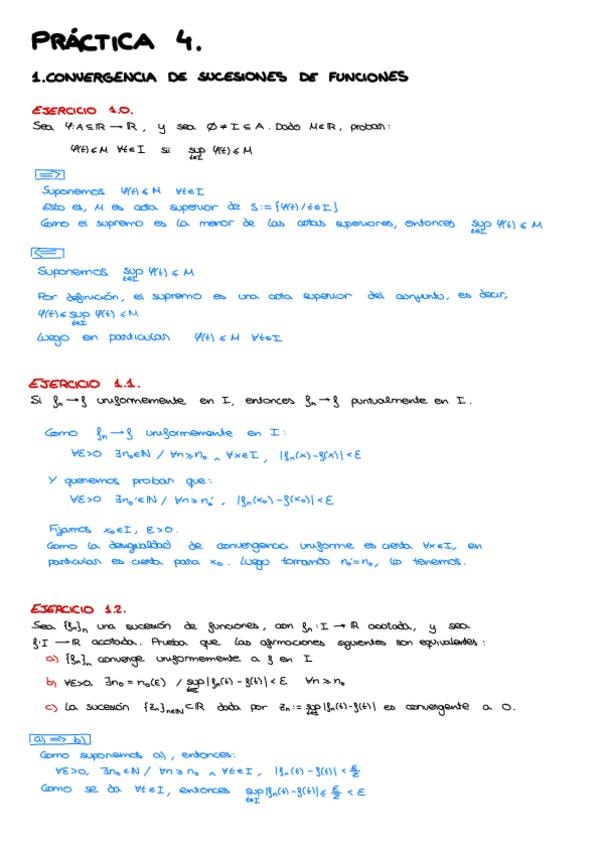 PRÁCTICA 4.
1. CONVERGENCIA DE SUCESIONES DE FUNCIONES
EJERCICIO 1.0.
Sea φ:A⊆ℝ→ℝ, y sea ∅≠I⊆A. Dado M∈ℝ, probar:
φ(t)≤M ∀t∈I sii sup_{t∈I} φ(t)≤M
=>
Suponemos φ(t)≤M ∀t∈I
Esto es, M es cota superior de S:={φ(t)/t∈I}
Como el supremo es la menor de las cotas superiores, entonces sup_{t∈I} φ(t)≤M
<=
Suponemos sup_{t∈I} φ(t)≤M
Por definición, el supremo es una cota superior del conjunto, es decir,
φ(t)≤sup_{t∈I} φ(t)≤M
Luego en particular φ(t)≤M ∀t∈I
EJERCICIO 1.1.
Si fn→f uniformemente en I, entonces fn→f puntualmente en I.
Como fn→f uniformemente en I:
∀ε>0 ∃n₀∈ℕ / ∀n≥n₀ ∧ ∀x∈I, |fn(x)-f(x)|<ε
Y queremos probar que:
∀ε>0 ∃n₀'∈ℕ / ∀n≥n₀', |fn(x₀)-f(x₀)|<ε
Fijamos x₀∈I, ε>0.
Como la desigualdad de convergencia uniforme es cierta ∀x∈I, en
particular es cierta para x₀. Luego tomando n₀'=n₀, lo tenemos.
EJERCICIO 1.2.
Sea {fn}n una sucesión de funciones, con fn:I→ℝ acotada, y sea
f:I→ℝ acotada. Prueba que las afirmaciones siguientes son equivalentes:
a) {fn}n converge uniformemente a f en I
b) ∀ε>0, ∃n₀=n₀(ε) / sup_{t∈I}|fn(t)-f(t)|<ε ∀n≥n₀
c) La sucesión {zn}n∈ℕ⊂ℝ dada por zn:=sup_{t∈I}|fn(t)-f(t)| es convergente a 0.
a) => b)
Como suponemos a), entonces:
∀ε>0, ∃n₀∈ℕ / ∀n≥n₀ ∧ ∀t∈I, |fn(t)-f(t)|<ε/2
Como se da ∀t∈I, entonces sup_{t∈I}|fn(t)-f(t)|≤ε/2<ε